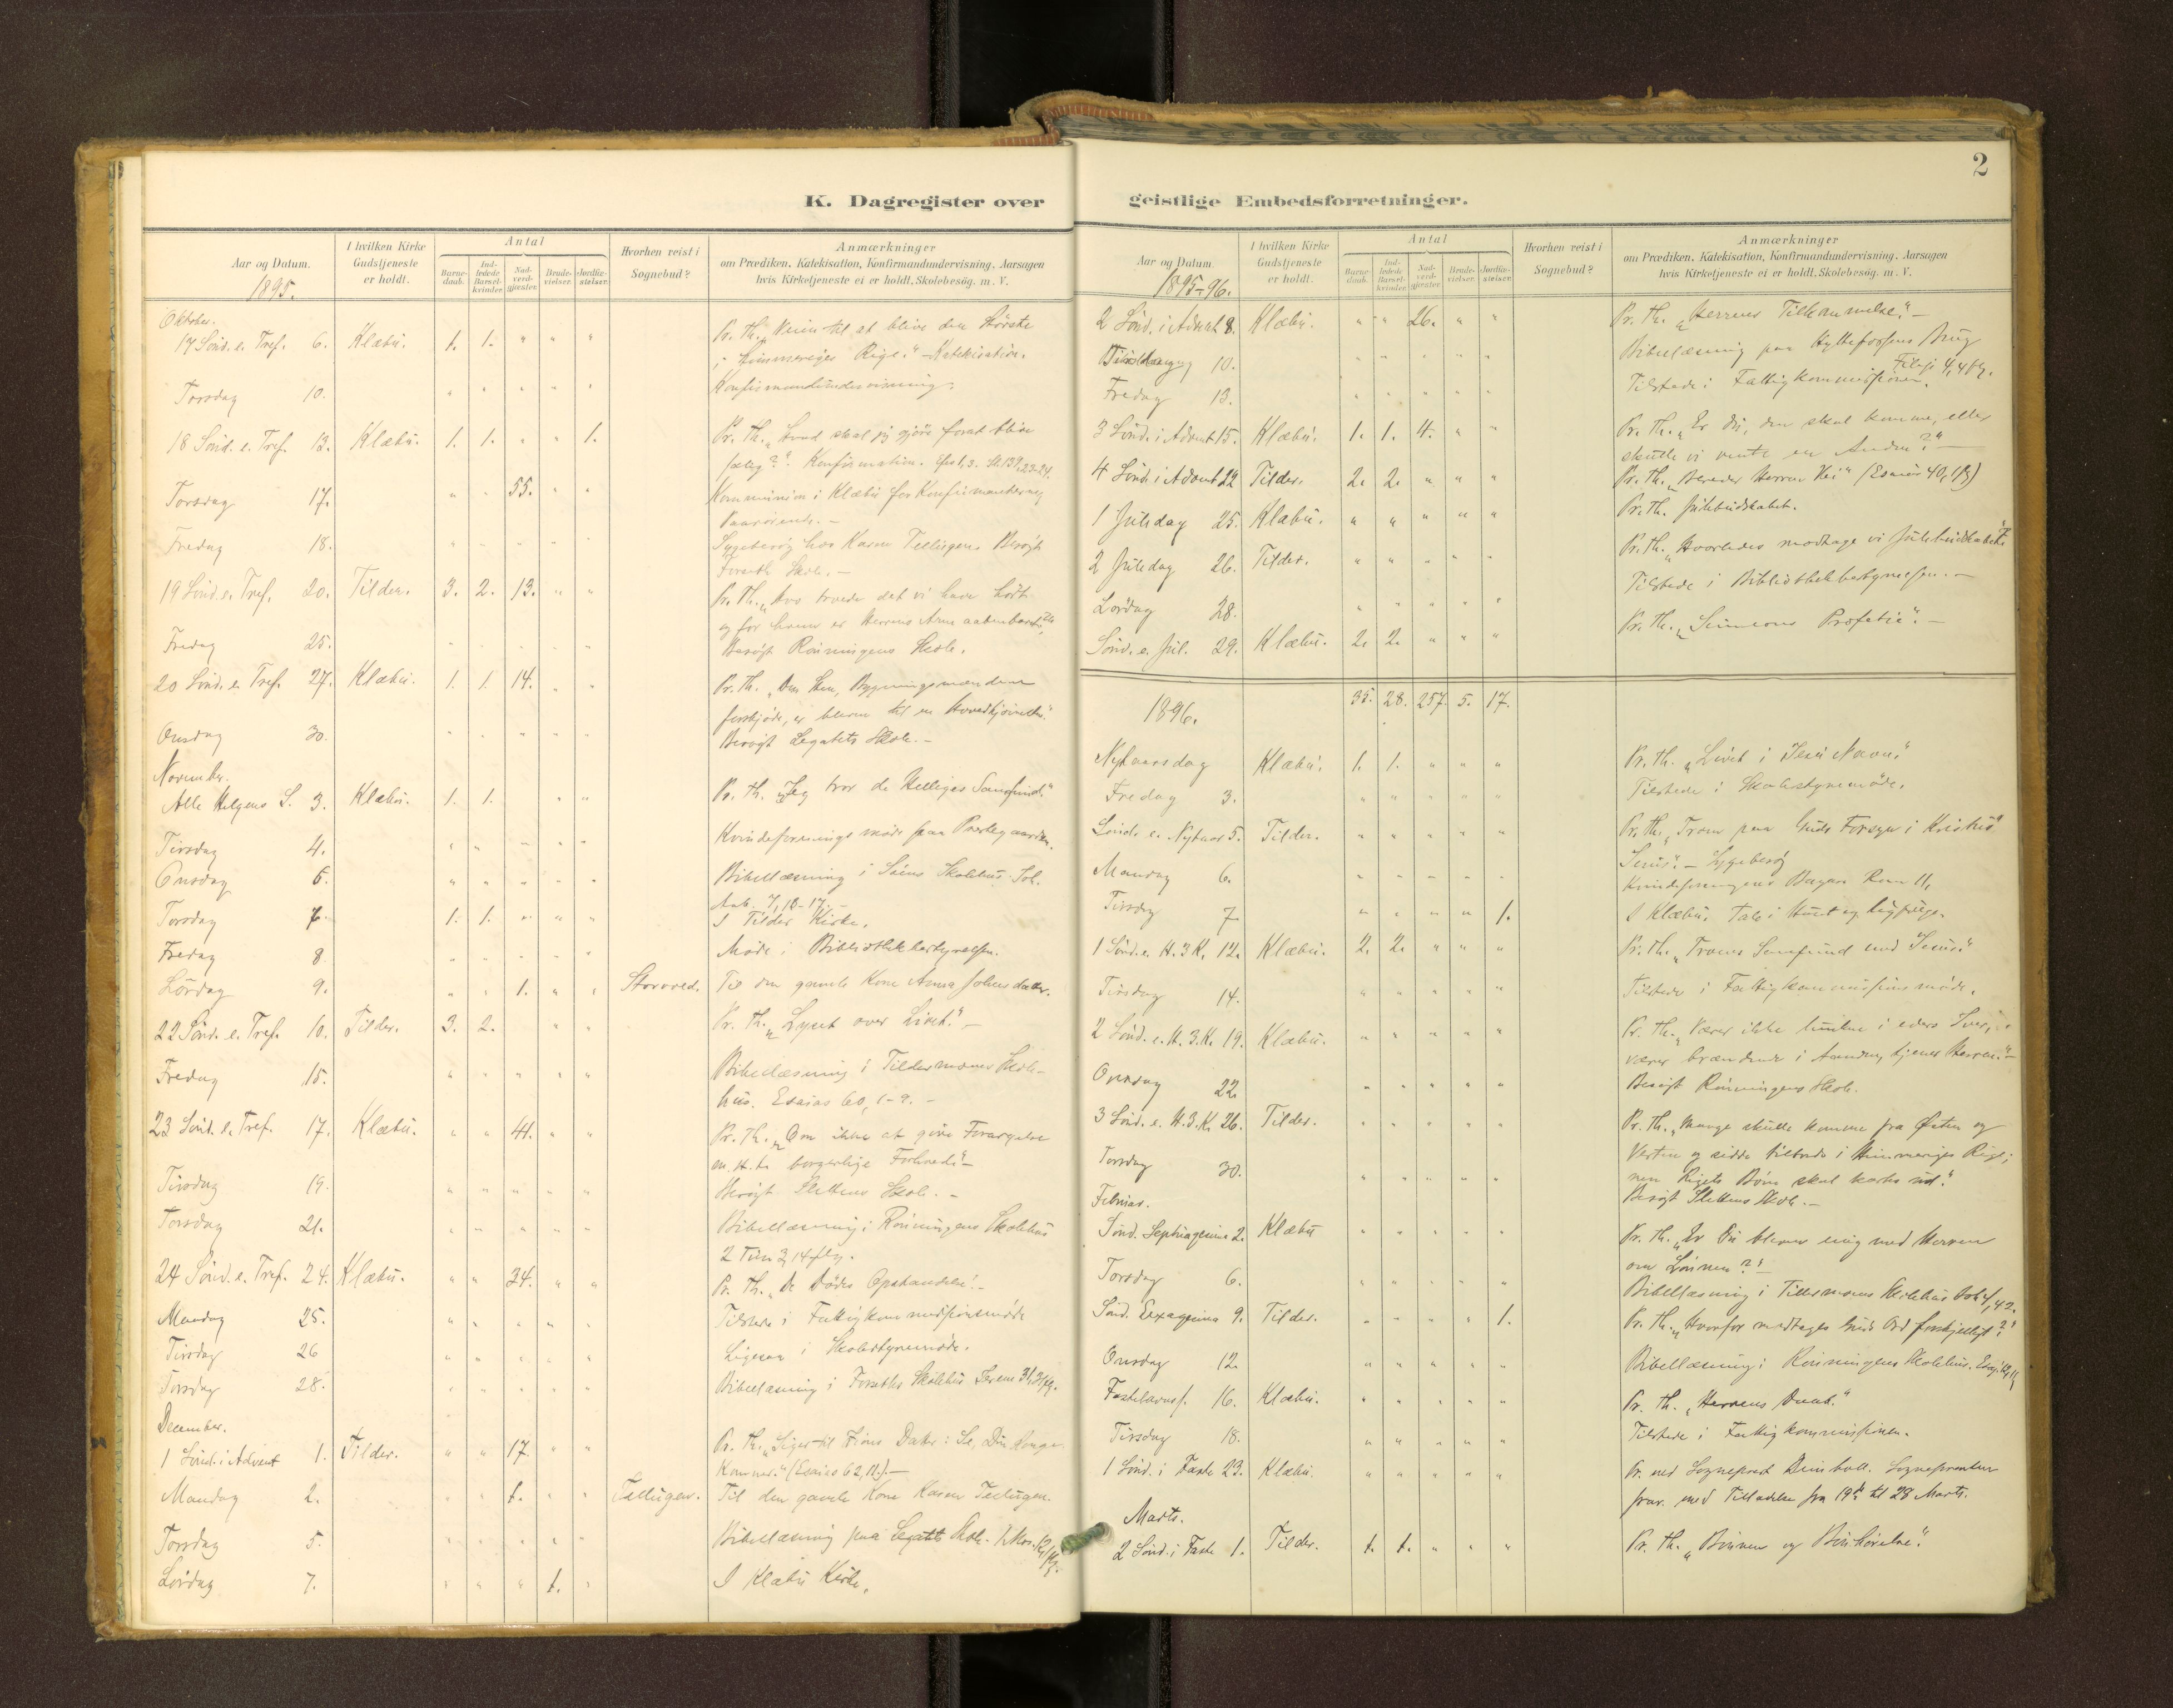 2
K. Dagregister over geistlige Embedsforretninger.
Aar og Datum. 1895.
I hvilken Kirke Gudstjeneste er holdt.
Antal
Barne-daab.
Ind-ledede Barsel-kvinder.
Nad-verd-gjester.
Brude-vielser.
Jordfæ-stelser.
Hvorhen reist i Sognebud?
Anmærkninger
om Prædiken, Katekisation, Konfirmandundervisning, Aarsagen
hvis Kirketjeneste ei er holdt, Skolebesög. m. V.
Oktober.
17 Sönd. e. Tref. 6. Klæbu. 1. 1. " " " Pr. Th. "Veien til at blive den Störste
i Himmeriges Rige." - Katekisation.
Torsdag 10. " " " " " Konfirmandundervisning.
18 Sönd. e. Tref. 13. Klæbu. 1. 1. " " 1. Pr. Th. "Hvad skal jeg gjöre forat blive
salig?" Konfirmation. 139,23-24.
Torsdag 17. " " 55. " " Kommunion i Klæbu for Konfirmanderne og
Paarörende. -
Fredag 18. " " " " " Sygebesög hos Karen Tellugen. Besögt
Forseth Skole. -
19 Sönd. e. Tref. 20. Tilder. 3. 2. 13. " " Pr. Th. "Hvo troede det vi have hört
og for hvem er Herrens Arm aabenbaret?"
Fredag 25. " " " " " Besögt Rönningens Skole.
20 Sönd. e. Tref. 27. Klæbu. 1. 1. 14. " " Pr. Th. "Den Sten, Bygningsmændene
forskjöde, er bleven til en Hovedhjörnesten."
Onsdag 30. " " " " " Besögt Legatets Skole. -
November.
Alle Helgens S. 3. Klæbu. 1. 1. " " Pr. Th. "Jeg tror de Helliges Samfund."
Tirsdag 4. " " " " " Kvindeforenings möde paa Prestegaarden.
Onsdag 6. " " " " " Bibellæsning i Skolehus. Joh.
Aab. 7, 13-17. -
Torsdag 7. 1. 1. " " " I Tilder Kirke.
Fredag 8. " " " " " Möde i Bibliothekbestyrelsen.
Lördag 9. " " 1. " " Storvold. Til den gamle Kone Anna Johnsdatter.
22 Sönd. e. Tref. 10. Tilder. 3. 2. " " Pr. Th. "Lyset over Livet." -
Fredag 15. " " " " " Bibellæsning i Tildermoens Skole-
hus. Esaias 60, 1-9. -
23 Sönd. e. Tref. 17. Klæbu. " " 41. " " Pr. Th. "Om ikke at give Forargelse
m. H. t. borgerlige Forhold." -
Tirsdag 19. " " " " " Besögt Slettens Skole. -
Torsdag 21. " " " " " Bibellæsning i Rönningens Skolehus
2 Tim 3, 14 flg.
24 Sönd. e. Tref. 24. Klæbu. " " 34. " " Pr. Th. "De Dödes Opstandelse." -
Mandag 25. " " " " " Tilstede i Fattigkommissionsmöde
Tirsdag 26 " " " " " Ligesaa i Skolestyremöde.
Torsdag 28. " " " " " Bibellæsning i Forseths Skolehus Jerem 31, 31 flg.
December.
1 Sönd. i Advent 1. Tilder. " " 17. " " Pr. Th. "Siger til Zions Datter: Se, Din Konge
Kommer." (Esaias 62, 11.). -
Mandag 2. " " 1. " " Tellugen. Til den gamle Kone Karen Tellugen.
Torsdag 5. " " " " " Bibellæsning paa Legatets Skole. 1. Mos. 12, 1 flg.
Lördag 7. " " " 1. " I Klæbu Kirke.
Aar og Datum 1895-96.
I hvilken Kirke Gudstjeneste er holdt.
Antal
Barne-daab.
Ind-ledede Barsel-kvinder.
Nad-verd-gjester.
Brude-vielser.
Jordfæ-stelser.
Hvorhen reist i Sognebud?
Anmærkninger
om Prædiken, Katekisation, Konfirmandundervisning, Aarsagen
hvis Kirketjeneste ei er holdt, Skolebesög. m. V.
2 Sönd. i Advent 8. Klæbu. " " 26. " " Pr. Th. "Herrens Tilkommelse." -
Tirsdag 10. " " " " " Bibellæsning paa Hyttefossens Brug
Filip. 4, 4 flg.
Fredag 13. " " " " " Tilstede i Fattigkommissionen.
3 Sönd. i Advent 15. Klæbu. 1. 1. 4. " " Pr. Th. "Er du, den skal komme, eller
skulle vi vente en Anden?" -
4 Sönd. i Advent 22 Tilder. 2. 2. " " " Pr. Th. "Bereder Herren Vei" (Esaias 40, 1 flg)
1 Juledag 25. Klæbu. " " " " " Pr. Th. Julebudskabet.
2 Juledag 26. Tilder. " " " " Pr. Th. "Hvorledes modtage vi Julebudskabet?"
Lördag 28. " " " " " Tilstede i Bibliothekbestyrelsen. -
Sönd. e. Jul. 29. Klæbu. 2. 2. " " " Pr. Th. "Simeons Profeti." -
1896. 35. 28. 257. 5. 17.
Nytaarsdag Klæbu. 1. 1. " " " Pr. Th. "Livet i Jesu Navn."
Fredag 3. " " " " " Tilstede i Skolestyremöde.
Sönd. e. Nytaar 5. Tilder. " " " " " Pr. Th. "Troen paa Guds Forsyn i Kristus
Jesus." - Sygebesög
Mandag 6. " " " " " Kvindeforeningens
Tirsdag 7. " " " " 1. I Klæbu. Tale i Huset og Ligfölge.
1 Sönd. e. H. 3 K. 12. Klæbu. 2. 2. " " " Pr. Th. "Troens Samfund med Jesus."
Tirsdag 14. " " " " " Tilstede i Fattigkommissions möde.
2 Sönd. e. H. 3. K. 19. Klæbu. " " " " " Pr. Th. "Værer ikke lunkne i eders Iver,
værer brændende i Aanden, tjener Herren." -
Onsdag 22 " " " " " Besögt Rönningens Skole.
3 Sönd. e. H. 3. K. 26. Tilder. " " " " " Pr. Th. "Mange skulle komme fra Østen og
Vesten og sidde tilbords i Himmeriges Rige;
men Rigets Börn skal kastes ud."
Torsdag 30. " " " " " Besögt Slettens Skole. -
Februar.
Sönd. Septuagesima 2. Klæbu " " " " " Pr. Th. "Er Du bleven enig med Herren
om Lönnen?" -
Torsdag 6. " " " " " Bibellæsning i Tillermoens Skolehus Joh 4, 42.
Sönd. Sexagesima 9. Tilder. " " " " 1. Pr. Th. "Hvorfor modtages Guds Ord forskjelligt?"
Onsdag 12. " " " " " Bibellæsning i Rönningens Skolehus.
Fastelavnss. 16. Klæbu. " " " " " Pr. Th. "Herrens Daab."
Tirsdag 18. " " " " " Tilstede i Fattigkommissionen.
1 Sönd. i Faste 23. Klæbu. " " " " " Pr. ved Sogneprest Deinboll. Sognepresten
frav. med Tilladelse fra 19de til 28 Marts.
Marts.
2 Sönd. i Faste 1. Tilder. 1. 1. " " " Pr. Th. "Bönnen og Bönhörelse."